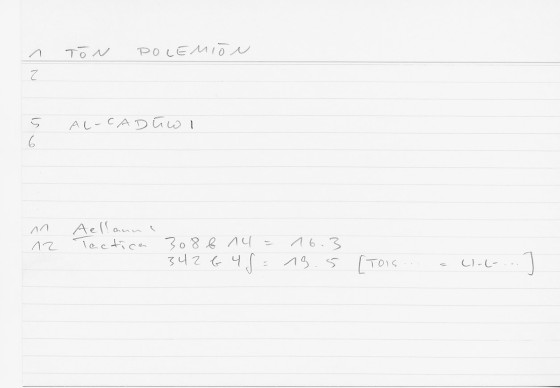 1 TŌN POLEMIŌN
2
5 AL-ʿADŪWI
6
11 Aelianus
12 Tactica 308 b 14 = 16.3
342 b 4f = 19.5 [TOIS ... = LI-L- ...]